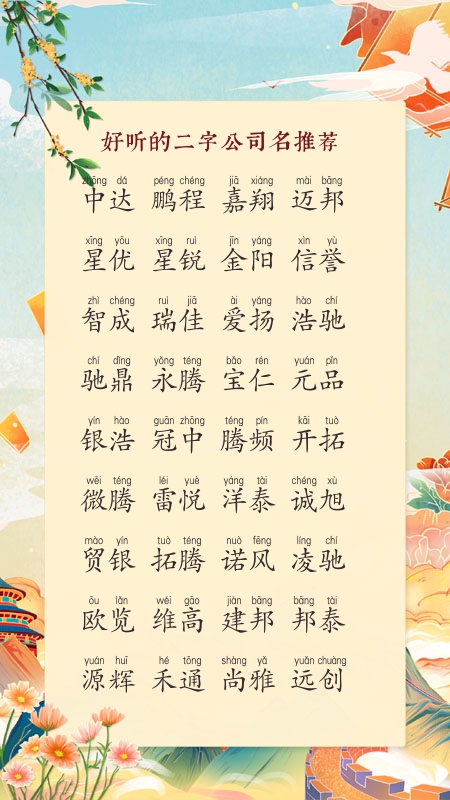 好听的二字公司名推荐
zhōng dá péng chéng jiā xiáng mài bāng
中达 鹏程 嘉翔 迈邦
xīng yōu xīng ruì jīn yáng xìn yù
星优 星锐 金阳 信誉
zhì chéng ruì jiā ài yáng hào chí
智成 瑞佳 爱扬 浩驰
chí dǐng yǒng téng bǎo rén yuán pǐn
驰鼎 永腾 宝仁 元品
yín hào guān zhōng téng pín kāi tuò
银浩 冠中 腾频 开拓
wēi téng léi yuè yáng tài chéng xù
微腾 雷悦 洋泰 诚旭
mào yín tuò téng nuò fēng líng chí
贸银 拓腾 诺风 凌驰
ōu lǎn wéi gāo jiàn bāng bāng tài
欧览 维高 建邦 邦泰
yuán huī hé tōng shàng yǎ yuǎn chuàng
源辉 禾通 尚雅 远创